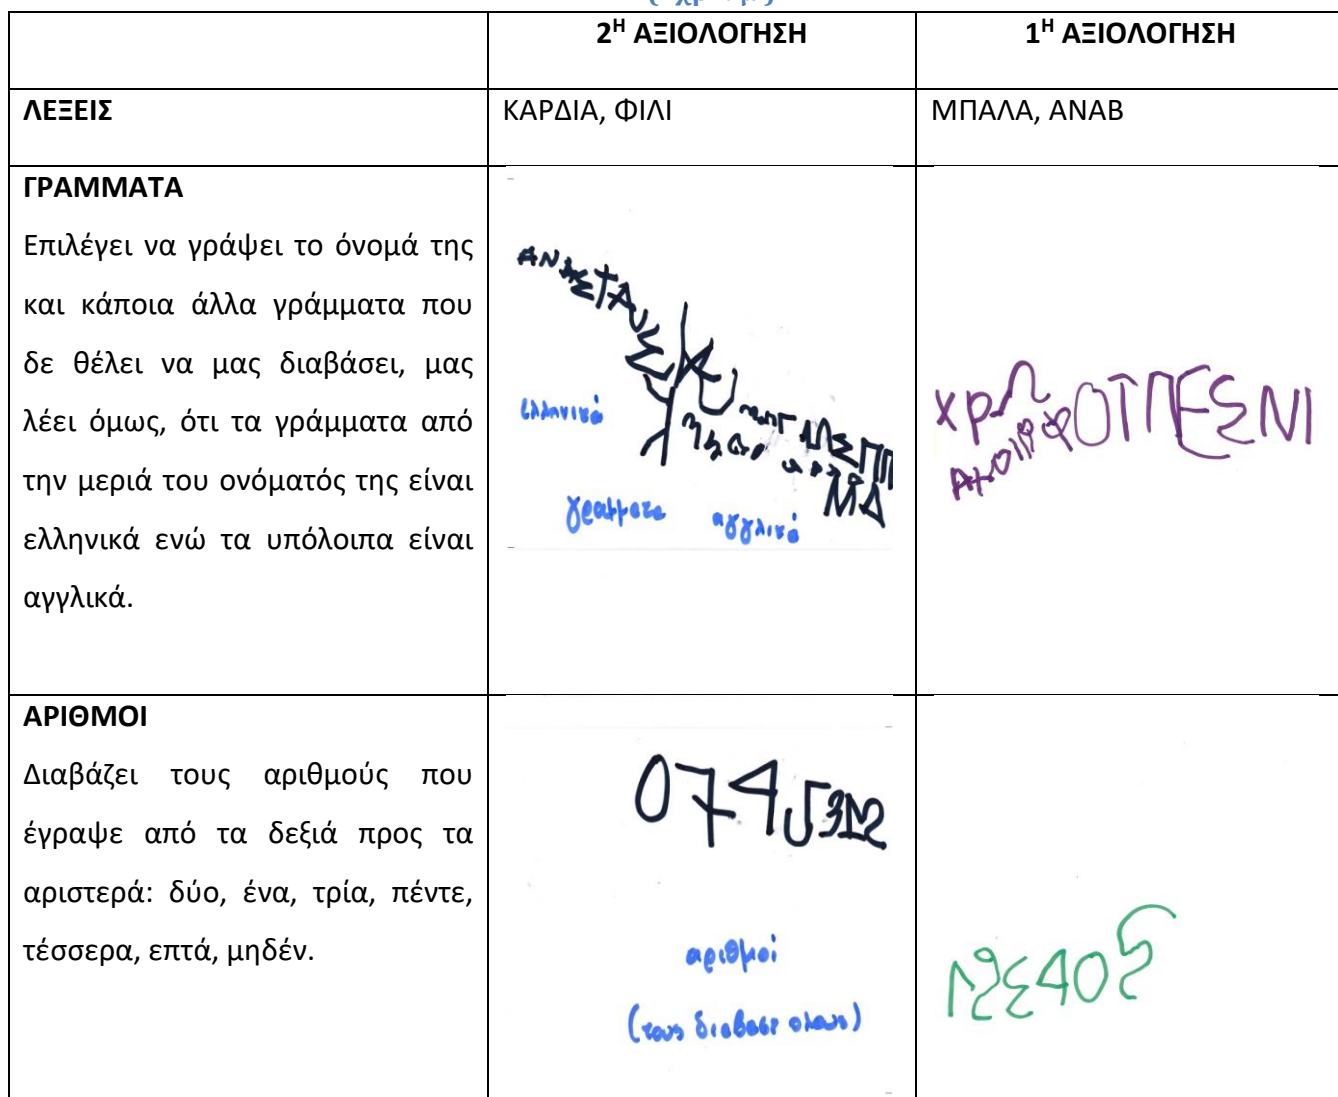 2Η ΑΞΙΟΛΟΓΗΣΗ
1Η ΑΞΙΟΛΟΓΗΣΗ
ΛΕΞΕΙΣ
ΚΑΡΔΙΑ, ΦΙΛΙ
ΜΠΑΛΑ, ΑΝΑΒ
ΓΡΑΜΜΑΤΑ
Επιλέγει να γράψει το όνομά της
και κάποια άλλα γράμματα που
δε θέλει να μας διαβάσει, μας
λέει όμως, ότι τα γράμματα από
την μεριά του ονόματός της είναι
ελληνικά ενώ τα υπόλοιπα είναι
αγγλικά.
ελληνικά
γράμματα αγγλικά
ΜΔ
ΧΡΩ
ΟΤΠΕΣΝΙ
ΑΡΙΘΜΟΙ
Διαβάζει τους αριθμούς που
έγραψε από τα δεξιά προς τα
αριστερά: δύο, ένα, τρία, πέντε,
τέσσερα, επτά, μηδέν.
0745312
αριθμοί
(τους διαβασε ολους)